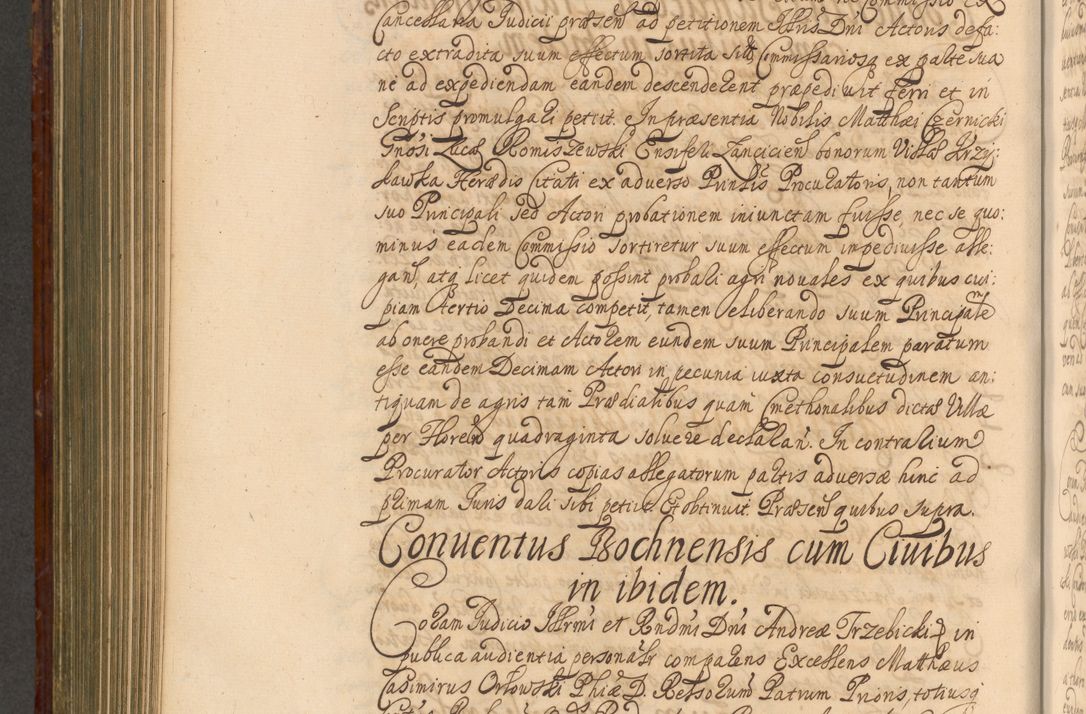 Cancellaria Iudicii præsen̄ ad petitionem Ill̄ris Dn̄i Actoris defa:
cto extradita suum effectum sortita sit Commissariosq ex parte sua
ne ad expediendam eandem descenderent præpediuit ferri et in
Scriptis promulgari petiit. In præsentia Nobilis Matthæi Czernicki
Gnosi Lucæ Romiszewski Ensiferi Lanciciens bonorum Villæ Krzy:
sławka Hæredis Citati ex adverso Prin̄lis Procuratoris, non tantum
suo Principali sed Actori probationem iniunctam fuisse, nec se quo:
minus eadem Commissio sortiretur suum effectum impediuisse alle:
gan̄, atq licet quidem possint probari agri nouales ex quibus cui:
piam tertio Decima competit, tamen reliberando suum Principalem
ab onere probandi et Actorem eundem suum Principalem paratum
esse eandem Decimam Actori in pecunia iuxta consuetudinem an:
tiquam de agris tam Prædialibus quam Cmethonalibus dictæ Villæ
per Floren̄ quadraginta soluere declaran̄. In contrarium
Procurator Actoris copias allegatorum partis adversæ hinc ad
primam Iuris dari sibi petiit Et obtinuit Præsen̄ quibus supra.
Conuentus Bochnensis cum Ciuibus
in ibidem.
Coram Iudicio Ill̄rmi et Rn̄dmi Dn̄i Andreæ Trzebicki E in
publica audientia personalr comparens Excellens Matthæus
Casimirus Orłowski Phiæ D. Rersorum Patrum Prioris, totiusq